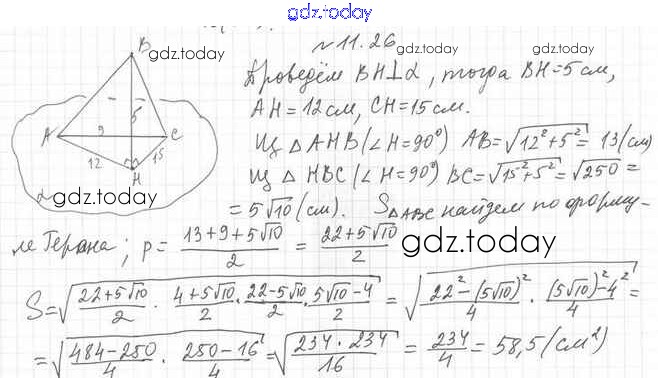 gdz.today
№ 11.26
B
gdz.today
gdz.today
Проведём BH⊥α, тогда BH=5 см,
5
AH=12 см, CH=15 см.
A 9 C
12 15
H
Из △AHB (∠H=90°) AB=√(12²+5²)= 13(см)
Из △HBC (∠H=90°) BC=√(15²+5²)=√250=
α
gdz.today
=5√10 (см). S△ABC найдем по форму-
ле Герона; p= (13+9+5√10)/2 = (22+5√10)/2
gdz.today
S=√((22+5√10)/2 · (4+5√10)/2 · (22-5√10)/2 · (5√10-4)/2) = √((22²-(5√10)²)/4 · ((5√10)²-4²)/4) =
=√((484-250)/4 · (250-16)/4) = √((234·234)/16) = 234/4 = 58,5 (см²)